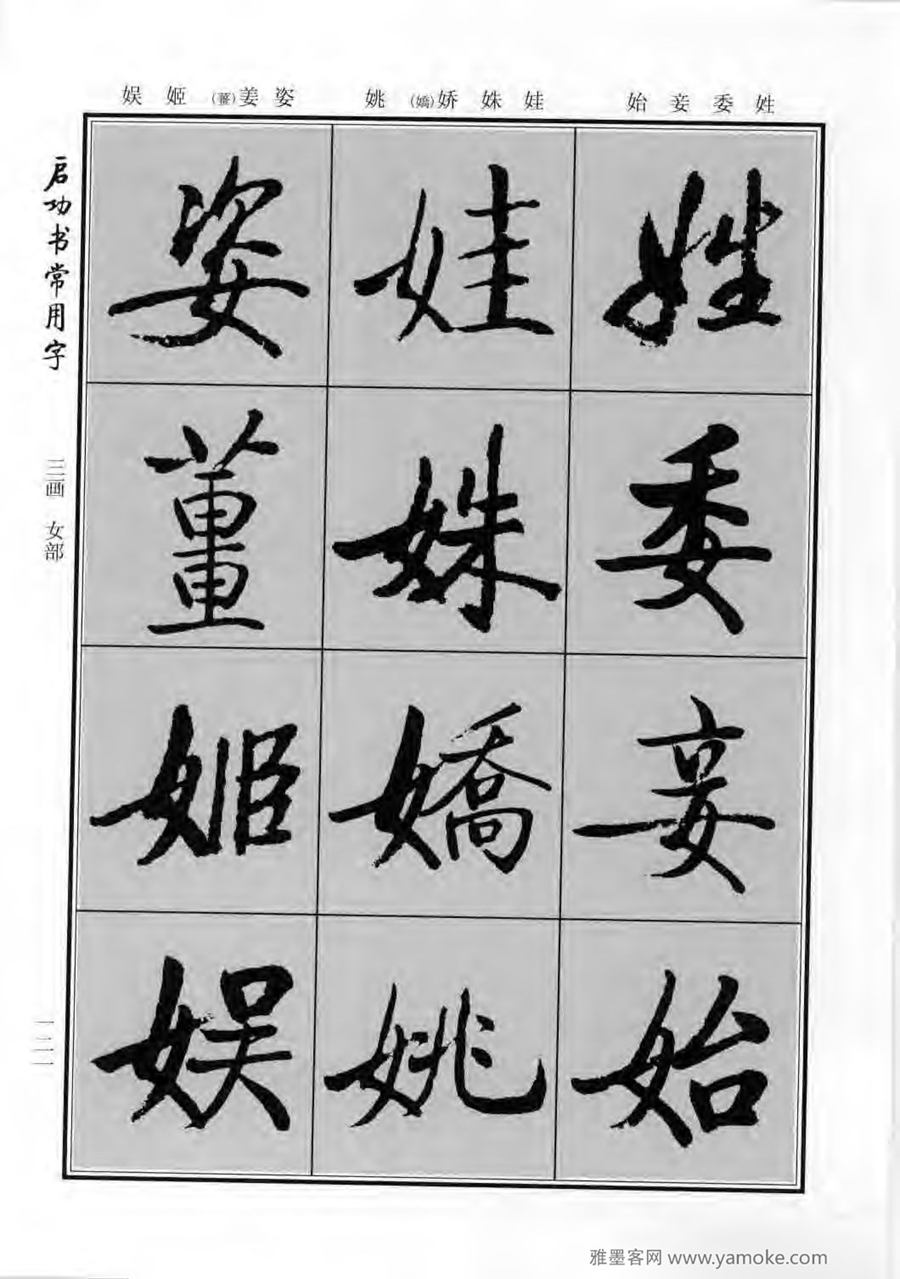 姓 委 妾 始
娃 姝 娇(嬌) 姚
姿 姜(薑) 姬 娱
姓委妾始
娃姝嬌姚
姿薑姬娱
启功书常用字
三画 女部
一二一
雅墨客网 www.yamoke.com